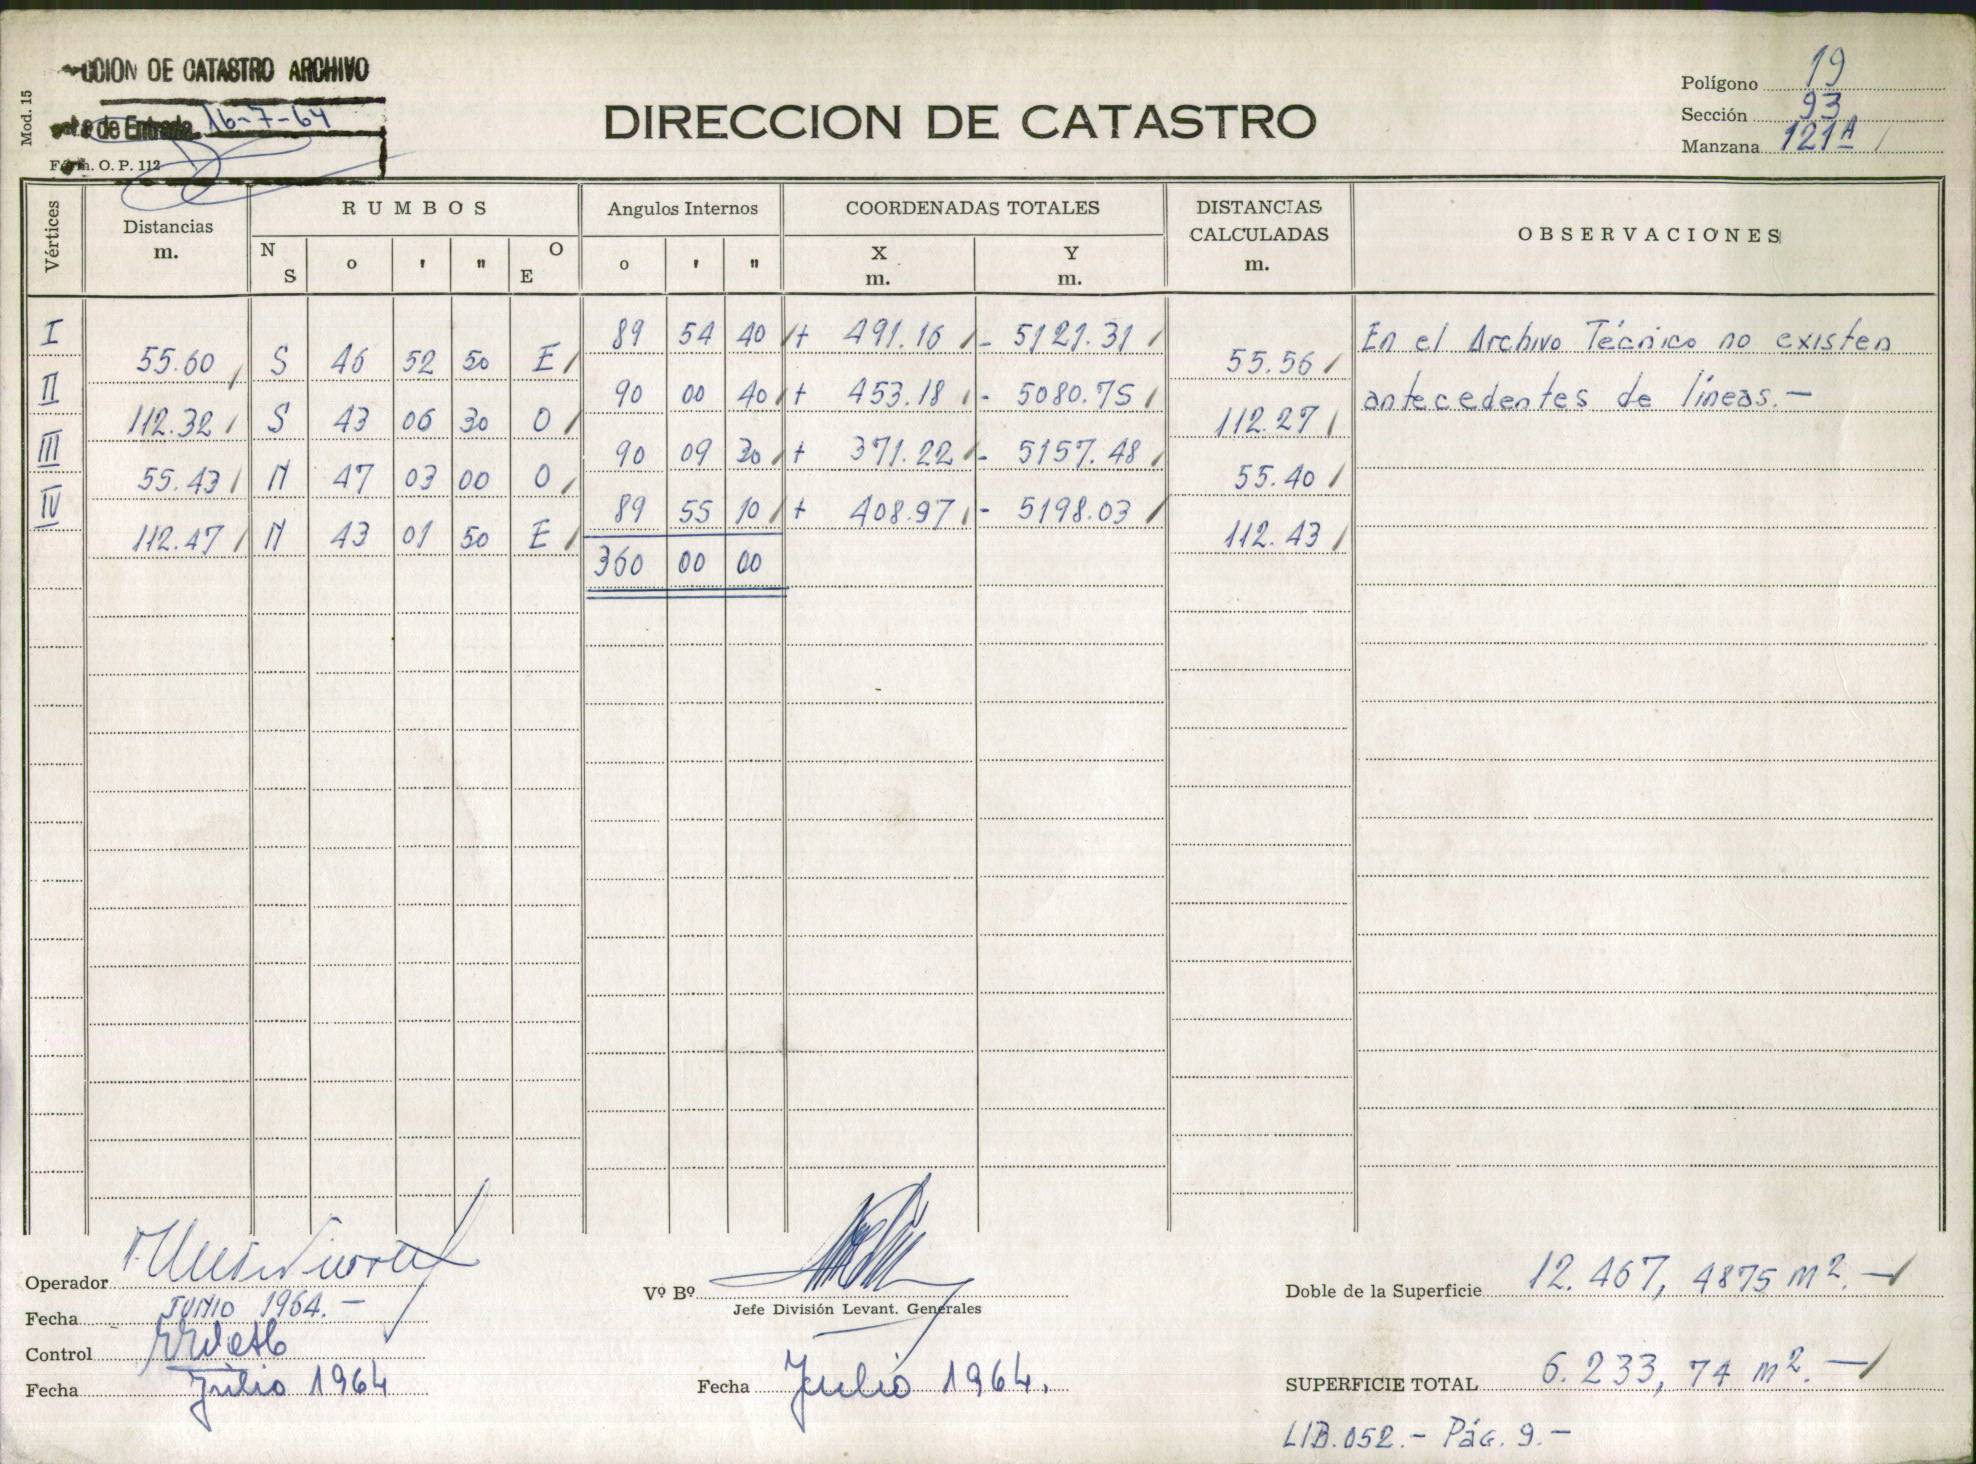 CCION DE CATASTRO ARCHIVO
de Entrada 16-7-64
Mod. 15
Form. O. P. 112
DIRECCION DE CATASTRO
Polígono 19
Sección 93
Manzana 121A
Vértices
Distancias m.
RUMBOS
N S o ' " O E
Angulos Internos
o ' "
COORDENADAS TOTALES
X m. Y m.
DISTANCIAS CALCULADAS m.
OBSERVACIONES
I 89 54 40 + 491.16 - 5121.31 En el Archivo Técnico no existen
55.60 S 46 52 50 E 55.56
II 90 00 40 + 453.18 - 5080.75 antecedentes de líneas.-
112.32 S 43 06 30 O 112.27
III 90 09 30 + 371.22 - 5157.48
55.43 N 47 03 00 O 55.40
IV 89 55 10 + 408.97 - 5198.03
112.47 N 43 01 50 E 112.43
360 00 00
Operador
Fecha JUNIO 1964.-
Control
Fecha Julio 1964
Vº Bº
Jefe División Levant. Generales
Fecha Julio 1964.
Doble de la Superficie 12.467,4875 m².-
SUPERFICIE TOTAL 6.233,74 m².-
LIB.052.- Pág. 9.-